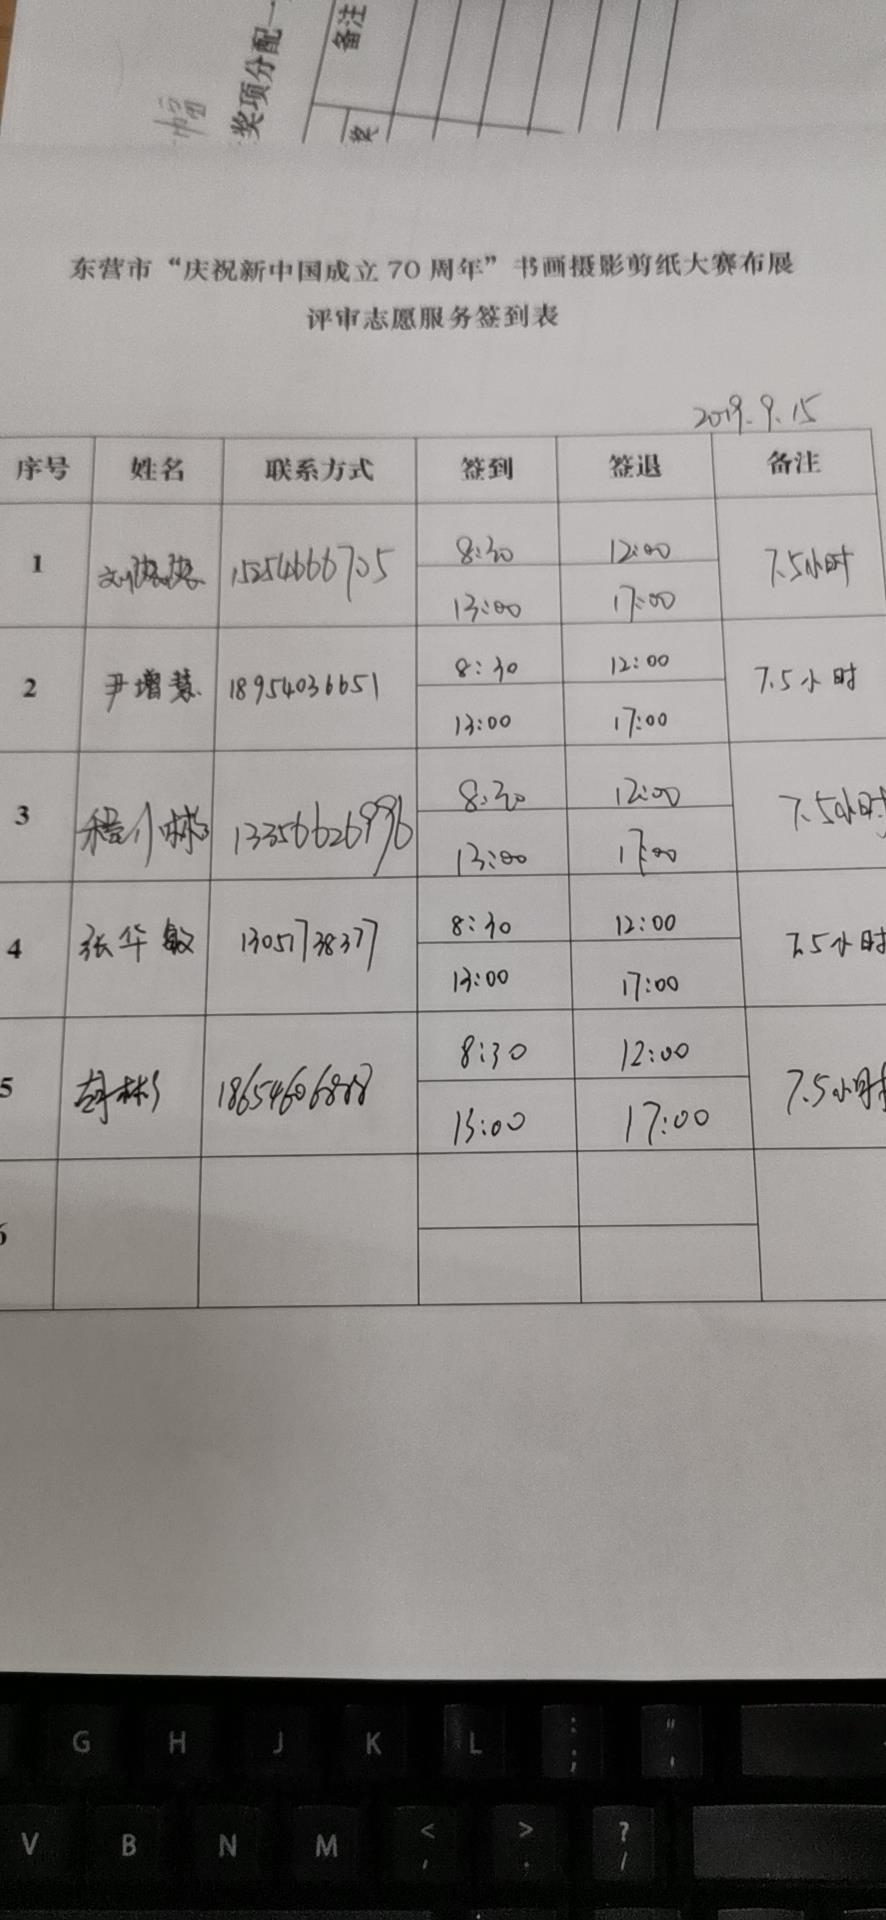 幅
奖项分配一
备注
奖
东营市“庆祝新中国成立 70 周年”书画摄影剪纸大赛布展
评审志愿服务签到表
2019.9.15
序号 姓名 联系方式 签到 签退 备注
1 15254666705 8:30 12:00 7.5小时
13:00 17:00
2 尹增慧 18954036651 8:30 12:00 7.5小时
13:00 17:00
3 程小彬 13356626996 8:30 12:00 7.5小时
13:00 17:00
4 张华敏 13051738377 8:30 12:00 7.5小时
13:00 17:00
5 18654606888 8:30 12:00 7.5小时
13:00 17:00
6
G H J K L : ; " '
V B N M < , > . ? /